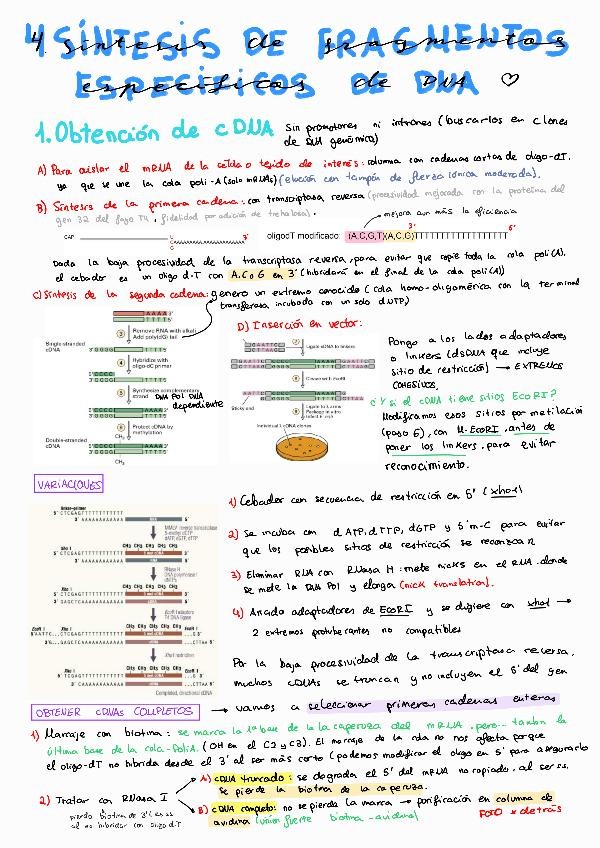 4. SÍNTESIS de FRAGMENTOS
ESPECÍFICOS de DNA ♡
1. Obtención de cDNA Sin promotores ni intrones (buscarlos en clones
de DNA genómico)
A) Para aislar el mRNA de la célula o tejido de interés: columna con cadenas cortas de oligo-dT,
ya que se une la cola poli-A (solo mRNAs) (elución con tampón de fuerza iónica moderada).
B) Síntesis de la primera cadena: con transcriptasa reversa (procesividad mejorada con la proteína del
gen 32 del fago T4, fidelidad por adición de trehalosa).
mejora aun más la eficiencia
CAP
AAAAAAAAAAAAAAA 3'
oligodT modificado: (A,C,G,T)(A,C,G)TTTTTTTTTTTTTTTTT
3' 5'
Dada la baja procesividad de la transcriptasa reversa, para evitar que copie toda la cola poli(A),
el cebador es un oligo d-T con A, C o G en 3' (hibridará en el final de la cola poli(A))
C) Síntesis de la segunda cadena: genero un extremo conocido (cola homo-oligomérica con la terminal
transferasa incubada con un solo dNTP)
3 Remove RNA with alkali
Add poly(dG) tail
Single-stranded
cDNA
3' GGGG TTTT 5'
4 Hybridize with
oligo-dC primer
5 Synthesize complementary
strand DNA Pol DNA
dependiente
6 Protect cDNA by
methylation
CH₃
Double-stranded
cDNA
CH₃
D) Inserción en vector:
7 Ligate cDNA to linkers
8 Cleave with EcoRI
Sticky end
Individual λ cDNA clones
Pongo a los lados adaptadores
o linkers (dsDNA que incluye
sitio de restricción) → EXTREMOS
COHESIVOS.
¿Y si el cDNA tiene sitios EcoRI?
Modificamos esos sitios por metilación
(paso 6), con M. EcoRI, antes de
poner los linkers, para evitar
reconocimiento.
VARIACIONES
linker-primer
5' CTCGAGTTTTTTTTTTTT
3' AAAAAAAAAAAA 5'
MMLV reverse transcriptase
5-methyl dCTP
dATP, dGTP, dTTP
Xho I
RNase H
DNA polymerase I
dNTPs
Xho I
EcoR I adaptors
T4 DNA ligase
EcoR I Xho I EcoR I
Xho I restriction
Xho I EcoR I
Completed, directional cDNA
1) Cebador con secuencia de restricción en 5' (xhoI)
2) Se incuba con dATP, dTTP, dGTP y 5'm-C para evitar
que los posibles sitios de restricción se reconozcan
3) Eliminar RNA con RNasa H: mete nicks en el RNA donde
se mete la DNA Pol y elonga (nick translation).
4) Añado adaptadores de EcoRI y se digiere con xhoI →
2 extremos protuberantes no compatibles
Por la baja procesividad de la transcriptasa reversa,
muchos cDNAs se truncan y no incluyen el 5' del gen
OBTENER cDNAs COMPLETOS → vamos a seleccionar primeras cadenas enteras
1) Marcaje con biotina: se marca la 1ª base de la caperuza del mRNA, pero... también la
última base de la cola-PoliA. (OH en el C2 y C3). El marcaje de la cola no nos afecta porque
el oligo-dT no hibrida desde el 3' al ser más corto (podemos modificar el oligo en 5' para asegurarlo
2) Tratar con RNasa I
A) cDNA truncado: se degrada el 5' del mRNA no copiado, al ser ss.
Se pierde la biotina de la caperuza.
B) cDNA completo: no se pierde la marca → purificación en columna de
avidina (unión fuerte biotina-avidina)
pierdo biotina de 3' (es ss
al no hibridar con oligo d-T
FOTO x detrás